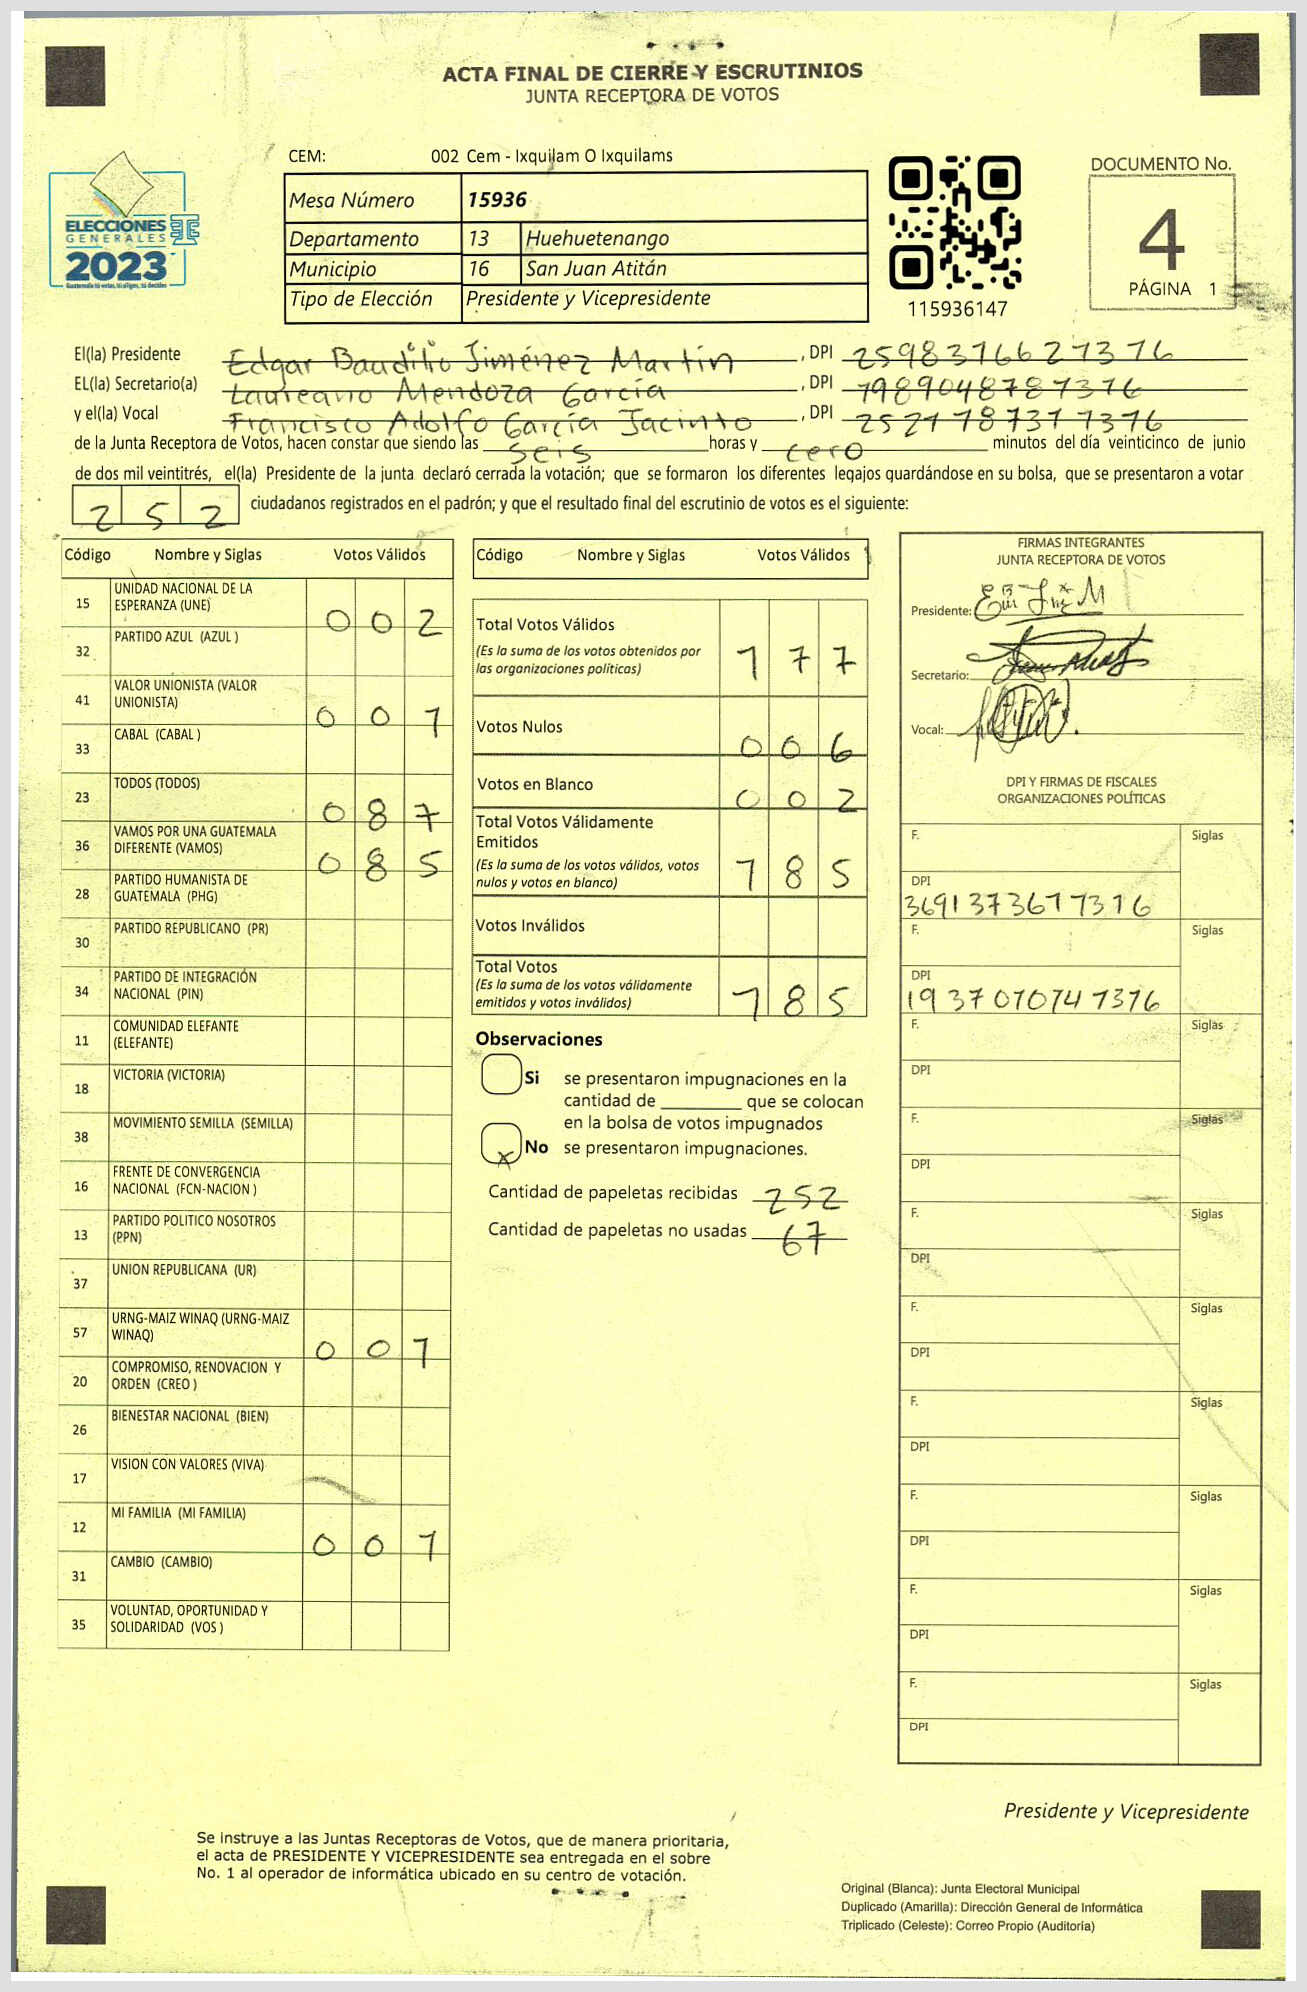 ACTA FINAL DE CIERRE Y ESCRUTINIOS
JUNTA RECEPTORA DE VOTOS
CEM: 002 Cem - Ixquilam O Ixquilams
ELECCIONES
GENERALES
2023
Guatemala tú votas, tú eliges, tú decides
Mesa Número 15936
Departamento 13 Huehuetenango
Municipio 16 San Juan Atitán
Tipo de Elección Presidente y Vicepresidente
115936147
DOCUMENTO No.
4
PÁGINA 1
El(la) Presidente Edgar Baudilio Jiménez Martín , DPI 2598376627376
EL(la) Secretario(a) Laureano Mendoza García , DPI 1989048787316
y el(la) Vocal Francisco Adolfo García Jacinto , DPI 2521787371376
de la Junta Receptora de Votos, hacen constar que siendo las seis horas y cero minutos del día veinticinco de junio
de dos mil veintitrés, el(la) Presidente de la junta declaró cerrada la votación; que se formaron los diferentes legajos quardándose en su bolsa, que se presentaron a votar
252 ciudadanos registrados en el padrón; y que el resultado final del escrutinio de votos es el siguiente:
Código Nombre y Siglas Votos Válidos
15 UNIDAD NACIONAL DE LA
ESPERANZA (UNE) 002
32 PARTIDO AZUL (AZUL )
41 VALOR UNIONISTA (VALOR
UNIONISTA) 001
33 CABAL (CABAL )
23 TODOS (TODOS) 087
36 VAMOS POR UNA GUATEMALA
DIFERENTE (VAMOS) 085
28 PARTIDO HUMANISTA DE
GUATEMALA (PHG)
30 PARTIDO REPUBLICANO (PR)
34 PARTIDO DE INTEGRACIÓN
NACIONAL (PIN)
11 COMUNIDAD ELEFANTE
(ELEFANTE)
18 VICTORIA (VICTORIA)
38 MOVIMIENTO SEMILLA (SEMILLA)
16 FRENTE DE CONVERGENCIA
NACIONAL (FCN-NACION )
13 PARTIDO POLITICO NOSOTROS
(PPN)
37 UNION REPUBLICANA (UR)
57 URNG-MAIZ WINAQ (URNG-MAIZ
WINAQ) 001
20 COMPROMISO, RENOVACION Y
ORDEN (CREO )
26 BIENESTAR NACIONAL (BIEN)
17 VISION CON VALORES (VIVA)
12 MI FAMILIA (MI FAMILIA) 001
31 CAMBIO (CAMBIO)
35 VOLUNTAD, OPORTUNIDAD Y
SOLIDARIDAD (VOS )
Código Nombre y Siglas Votos Válidos
Total Votos Válidos
(Es la suma de los votos obtenidos por
las organizaciones políticas) 177
Votos Nulos 006
Votos en Blanco 002
Total Votos Válidamente
Emitidos
(Es la suma de los votos válidos, votos
nulos y votos en blanco) 185
Votos Inválidos
Total Votos
(Es la suma de los votos válidamente
emitidos y votos inválidos) 185
Observaciones
Si se presentaron impugnaciones en la
cantidad de ________ que se colocan
en la bolsa de votos impugnados
X No se presentaron impugnaciones.
Cantidad de papeletas recibidas 252
Cantidad de papeletas no usadas 67
FIRMAS INTEGRANTES
JUNTA RECEPTORA DE VOTOS
Presidente:
Secretario:
Vocal:
DPI Y FIRMAS DE FISCALES
ORGANIZACIONES POLÍTICAS
F. Siglas
DPI
3691373611316
F. Siglas
DPI
1937070741316
F. Siglas
DPI
F. Siglas
DPI
F. Siglas
DPI
F. Siglas
DPI
F. Siglas
DPI
F. Siglas
DPI
F. Siglas
DPI
F. Siglas
DPI
Presidente y Vicepresidente
Se instruye a las Juntas Receptoras de Votos, que de manera prioritaria,
el acta de PRESIDENTE Y VICEPRESIDENTE sea entregada en el sobre
No. 1 al operador de informática ubicado en su centro de votación.
Original (Blanca): Junta Electoral Municipal
Duplicado (Amarilla): Dirección General de Informática
Triplicado (Celeste): Correo Propio (Auditoría)